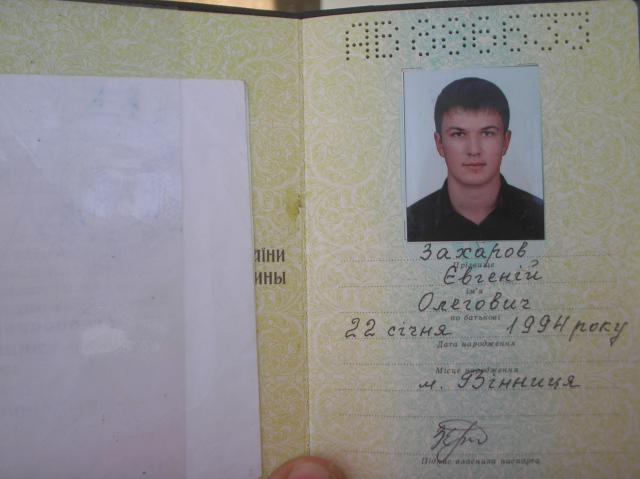 аїни
ины
АВ
Захаров
Прізвище
Євгеній
ім'я
Олегович
по батькові
22 січня 1994 року
Дата народження
Місце народження
м. Вінниця
Підпис власника паспорта